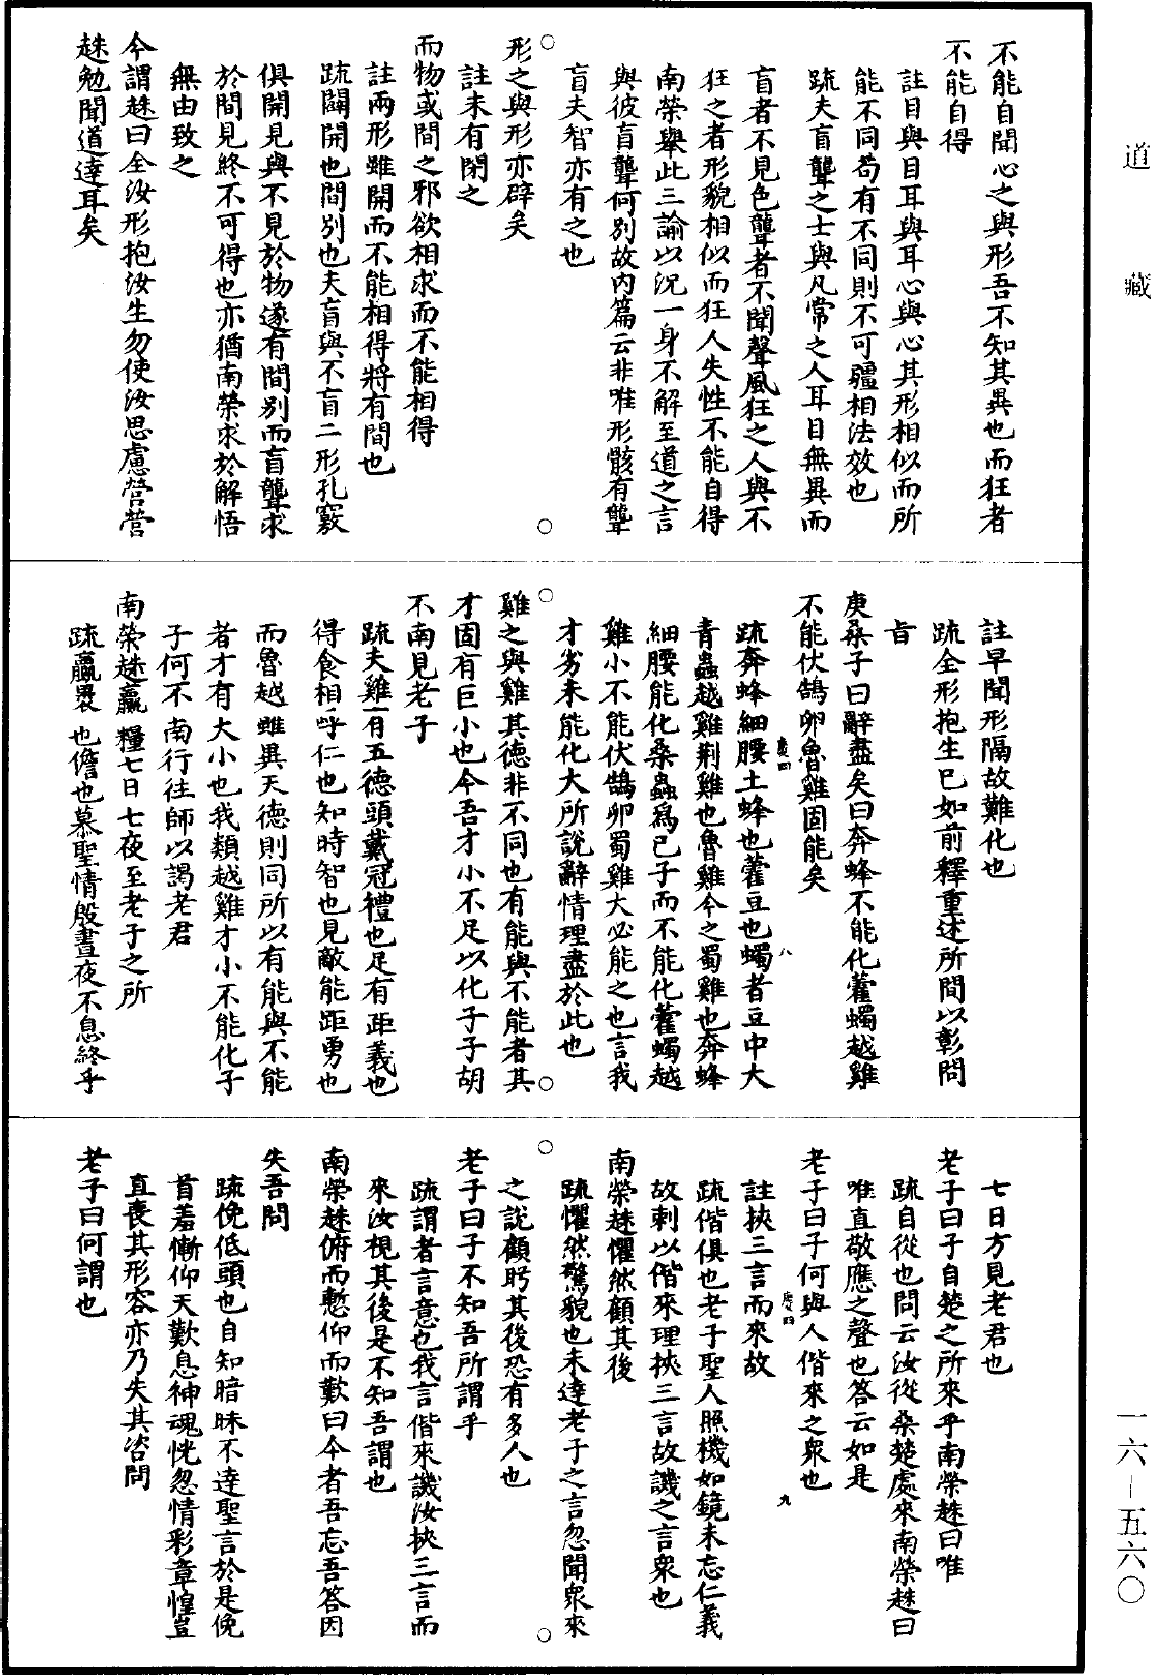 道藏
不能自聞心之與形吾不知其異也而狂者
不能自得
註目與目耳與耳心與心其形相似而所
能不同苟有不同則不可彊相法效也
疏夫盲聾之士與凡常之人耳目無異而
盲者不見色聾者不聞聲風狂之人與不
狂之者形貌相似而狂人失性不能自得
南榮舉此三諭以況一身不解至道之言
與彼盲聾何別故内篇云非唯形骸有聾
盲夫智亦有之也
形之與形亦辟矣
註未有閉之
而物或間之邪欲相求而不能相得
註兩形雖開而不能相得將有間也
疏闢開也間別也夫盲與不盲二形孔竅
俱開見與不見於物遂有間別而盲聾求
於間見終不可得也亦猶南榮求於解悟
無由致之
今謂趎曰全汝形抱汝生勿使汝思慮營營
趎勉聞道達耳矣
註早聞形隔故難化也
疏全形抱生已如前釋重述所聞以彰問
旨
庚桑子曰辭盡矣曰奔蜂不能化藿蠋越雞
不能伏鵠卵魯雞固能矣
疏奔蜂細腰土蜂也藿豆也蠋者豆中大
青蟲越雞荊雞也魯雞今之蜀雞也奔蜂
細腰能化桑蟲為己子而不能化藿蠋越
雞小不能伏鵠卵蜀雞大必能之也言我
才劣未能化大所說辭情理盡於此也
雞之與雞其德非不同也有能與不能者其
才固有巨小也今吾才小不足以化子子胡
不南見老子
疏夫雞有五德頭戴冠禮也足有距義也
得食相呼仁也知時智也見敵能距勇也
而魯越雖異天德則同所以有能與不能
者才有大小也我類越雞才小不能化子
子何不南行往師以謁老君
南榮趎贏糧七日七夜至老子之所
疏贏裹也儋也慕聖情殷晝夜不息終乎
七日方見老君也
老子曰子自楚之所來乎南榮趎曰唯
疏自從也問云汝從桑楚處來南榮趎曰
唯直敬應之聲也答云如是
老子曰子何與人偕來之衆也
註挾三言而來故
疏偕俱也老子聖人照機如鏡未忘仁義
故刺以偕來理挾三言故譏之言衆也
南榮趎懼然顧其後
疏懼然驚貌也未達老子之言忽聞衆來
之說顧盻其後恐有多人也
老子曰子不知吾所謂乎
疏謂者言意也我言偕來譏汝挾三言而
來汝視其後是不知吾謂也
南榮趎俯而慙仰而歎曰今者吾忘吾答因
失吾問
疏俛低頭也自知暗昧不達聖言於是俛
首羞慚仰天歎息神魂恍忽情彩章惶豈
直喪其形容亦乃失其咨問
老子曰何謂也
庚四
八
庚四
九
一六—五六〇